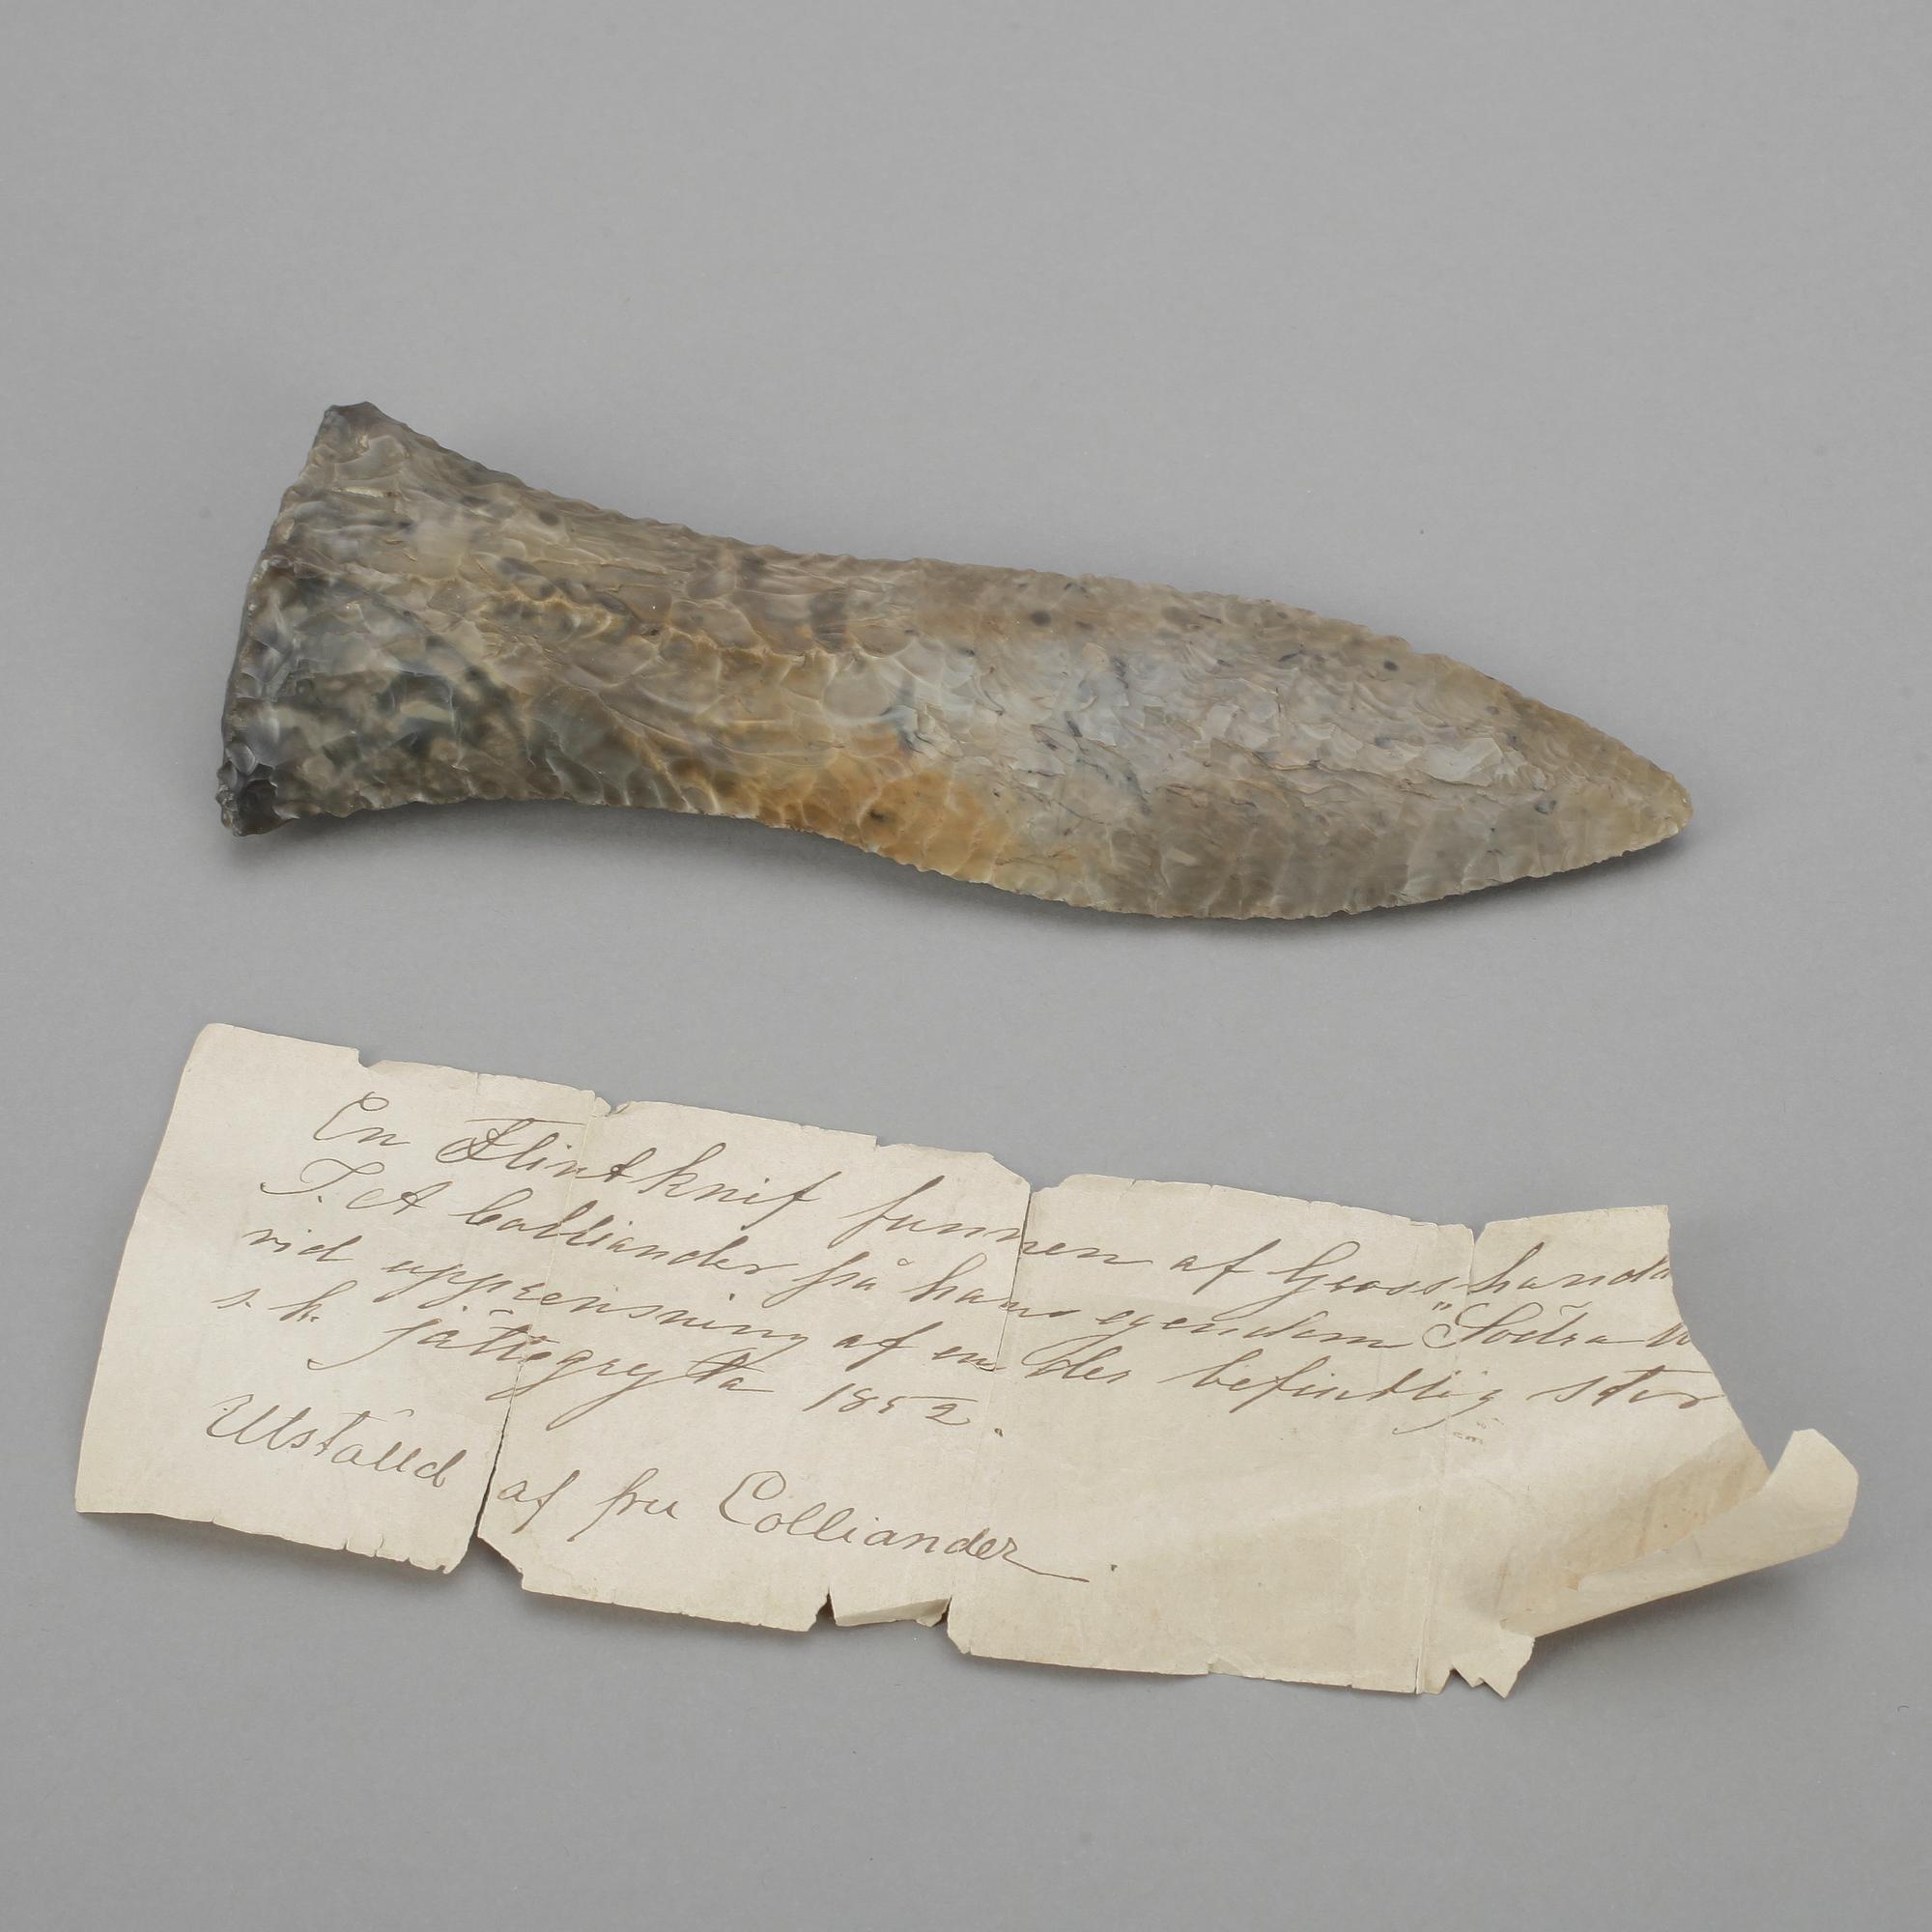 En Flintknif funnen af Grosshandla
T. A Colliander på hans egendom "Södra
vid upprensning af en der befintlig stor
s. k. jättegryta 1852.
Utställd af fru Colliander.